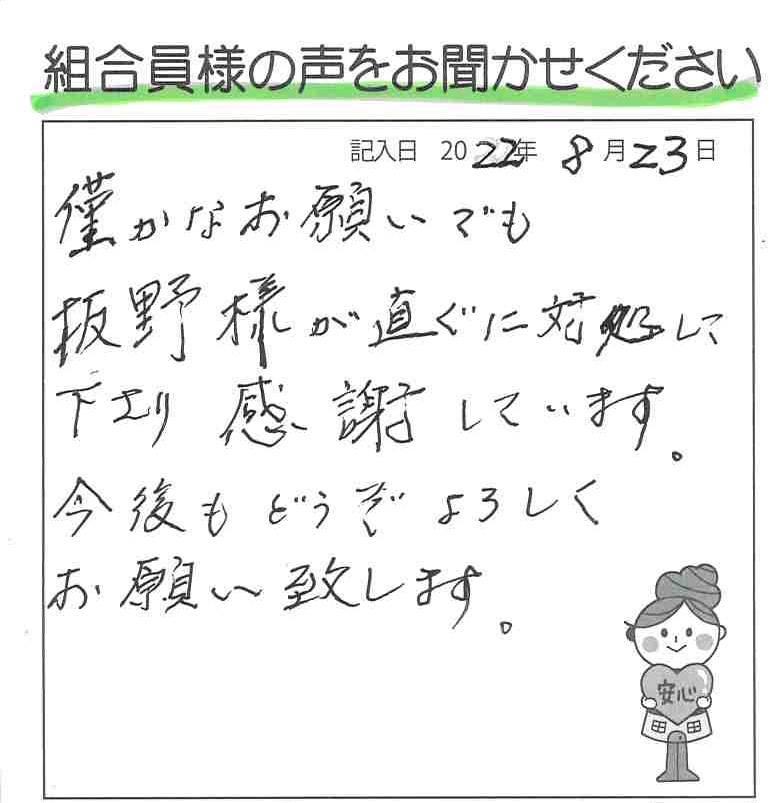 組合員様の声をお聞かせください
記入日 2022年 8月23日
僅かなお願いでも
板野様が直ぐに対処して
下さり 感謝しています。
今後もどうぞよろしく
お願い致します。
安心